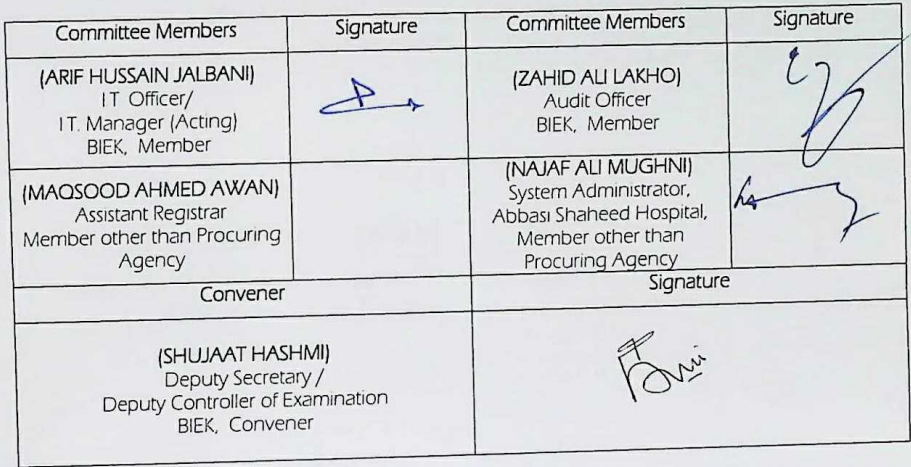 Committee Members
Signature
Committee Members
Signature
(ARIF HUSSAIN JALBANI)
IT Officer/
IT. Manager (Acting)
BIEK, Member
(ZAHID ALI LAKHO)
Audit Officer
BIEK, Member
(MAQSOOD AHMED AWAN)
Assistant Registrar
Member other than Procuring
Agency
(NAJAF ALI MUGHNI)
System Administrator,
Abbasi Shaheed Hospital,
Member other than
Procuring Agency
Convener
Signature
(SHUJAAT HASHMI)
Deputy Secretary /
Deputy Controller of Examination
BIEK, Convener